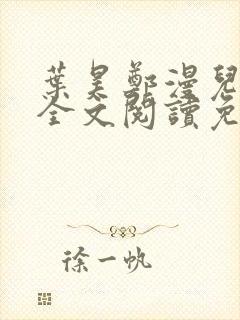 葉昊鄭漫兒
全文閱讀免
徐一帆